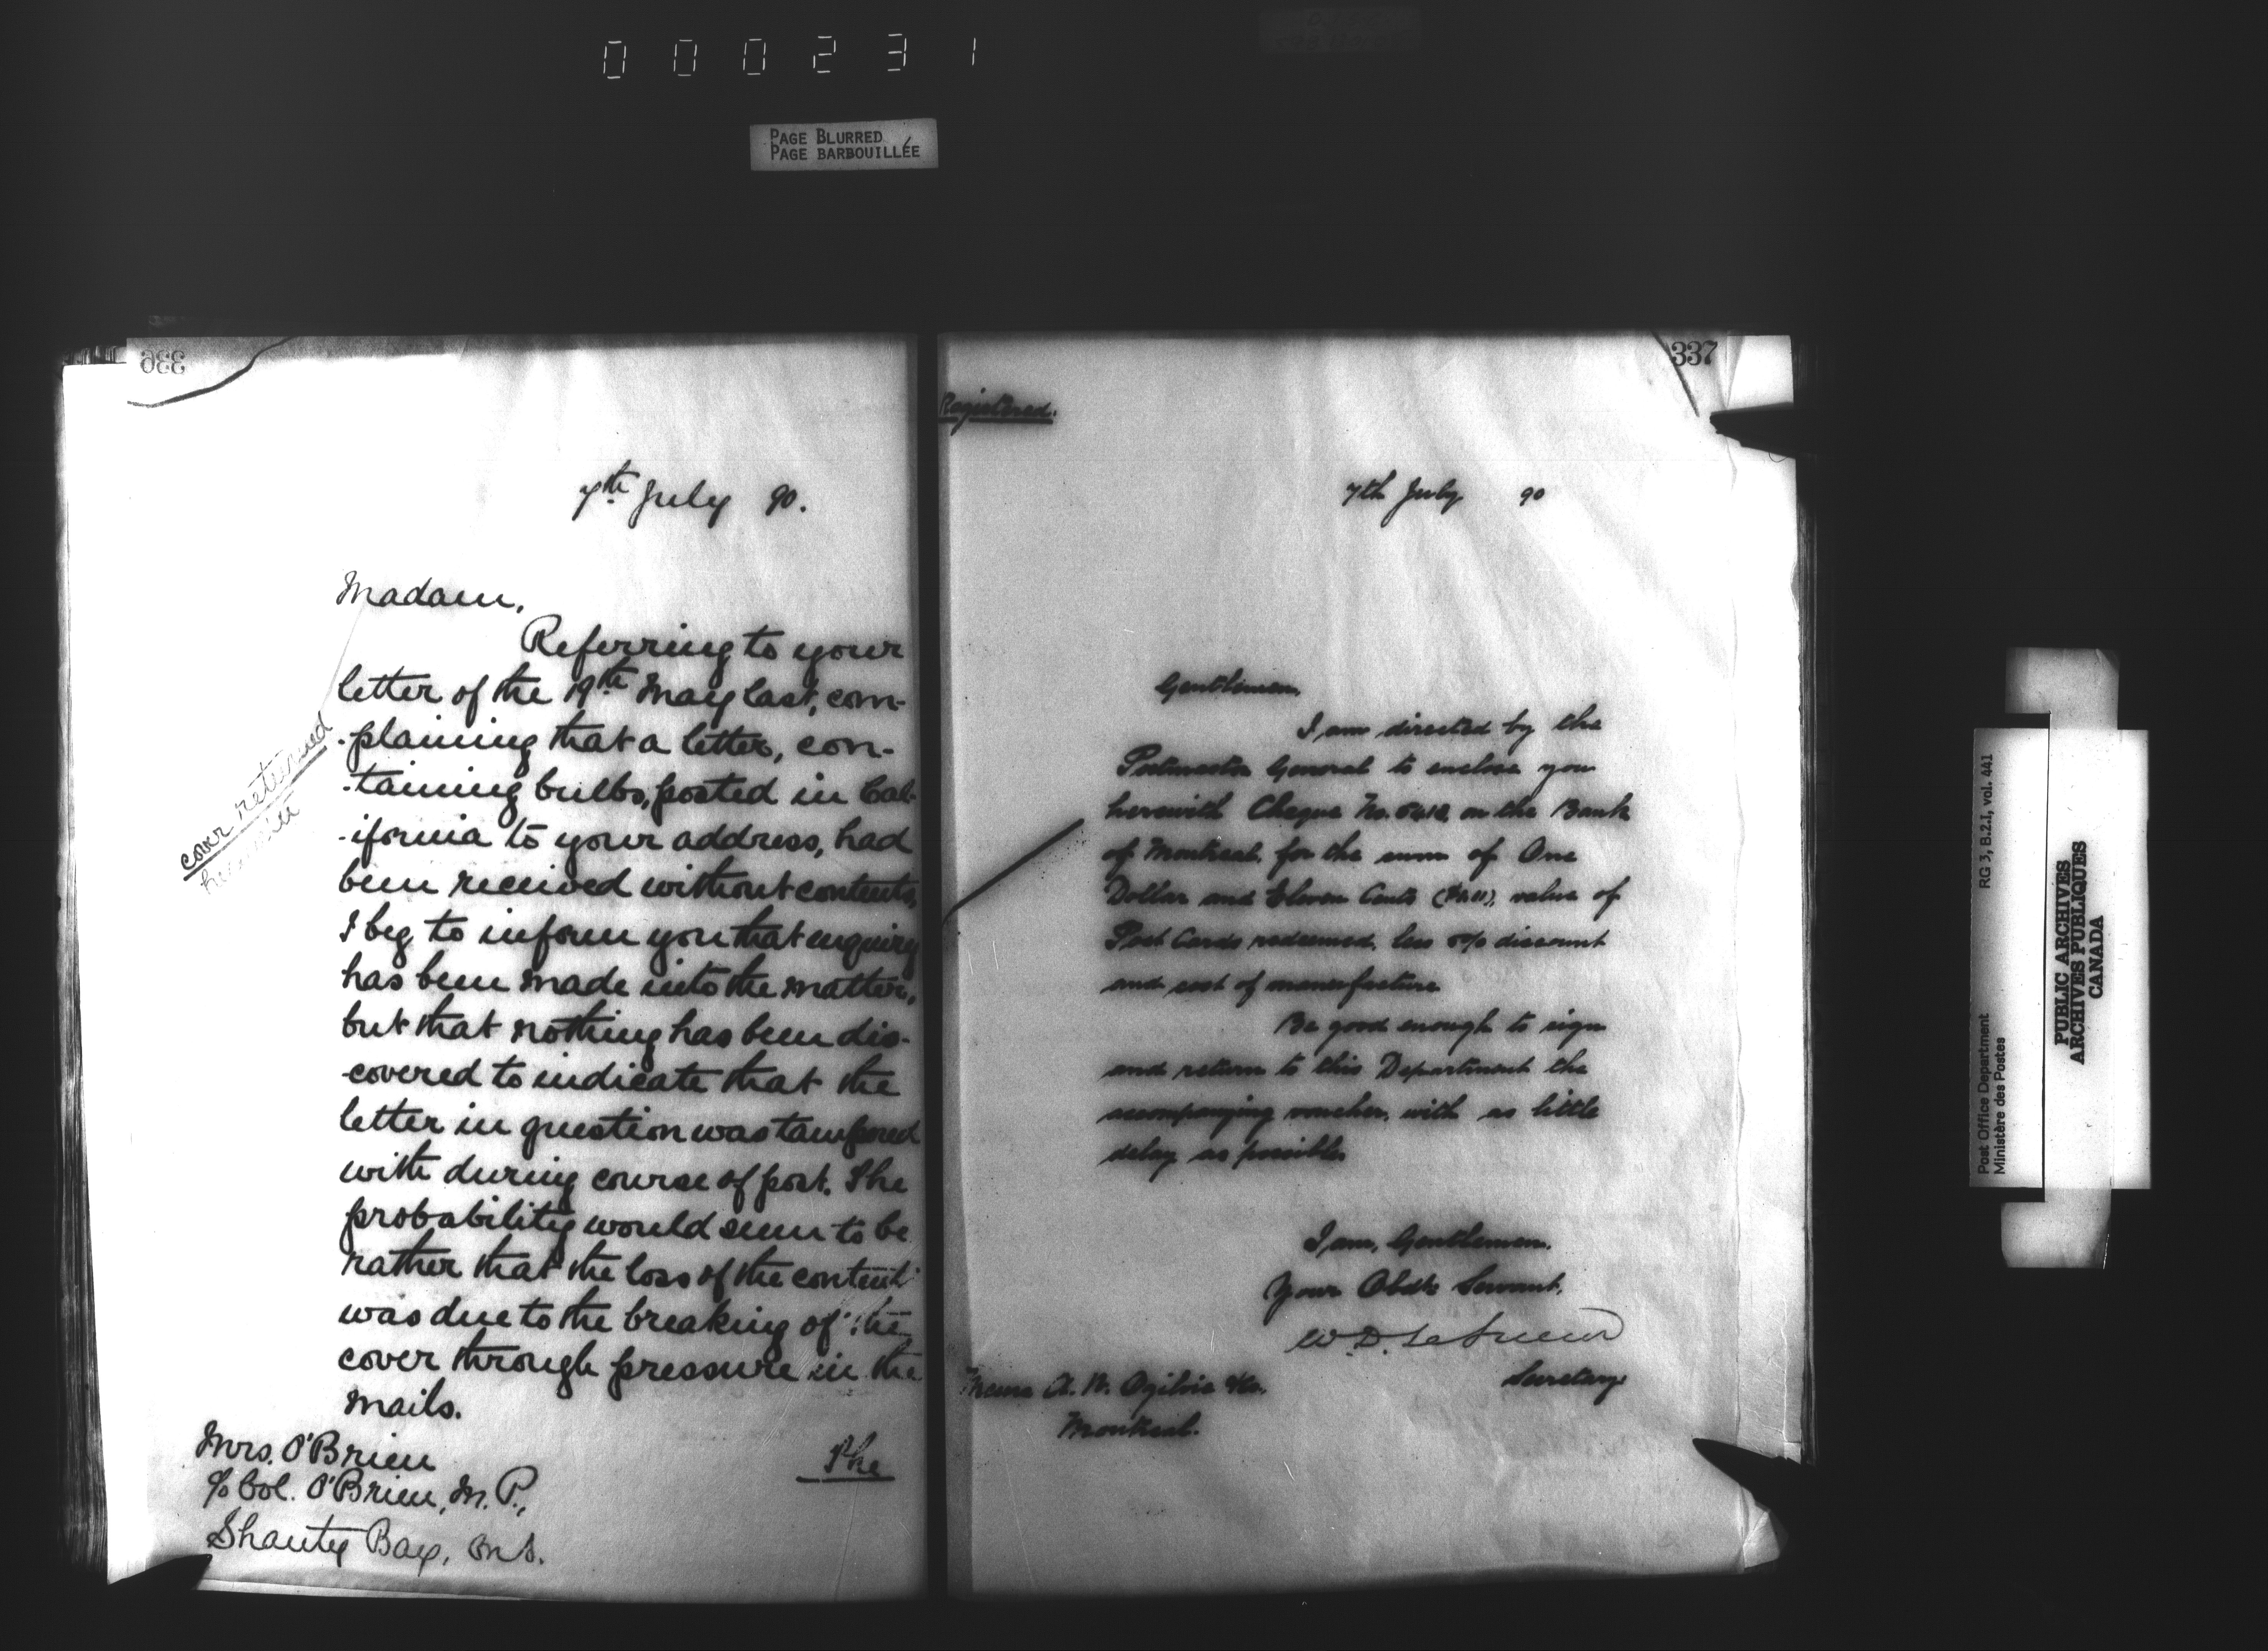 000231
PAGE BLURRED
PAGE BARBOUILLÉE
336
7th July 90.
Madam,
Referring to your
letter of the 19th May last, com-
-plaining that a letter, con-
-taining bulbs, posted in Cal-
-ifornia to your address, had
been received without contents,
I beg to inform you that enquiry
has been made into the matter,
but that nothing has been dis-
-covered to indicate that the
letter in question was tampered
with during course of post. The
probability would seem to be
rather that the loss of the contents
was due to the breaking of the
cover through pressure in the
mails.
The
cover returned
herewith
Mrs. O'Brien
c/o Col. O'Brien, M.P.,
Shanty Bay, Ont.
337
Registered.
7th July 90
Gentlemen,
I am directed by the
Postmaster General to enclose you
herewith Cheque No. on the Bank
of Montreal for the sum of One
Dollar and Eleven Cents ($1.11), value of
Post Cards redeemed, less 5% discount
and cost of manufacture
Be good enough to sign
and return to this Department the
accompanying voucher, with as little
delay as possible.
I am, Gentlemen,
Your Obdt Servant,
W.D. LeSueur
Secretary
Messrs A. W. Ogilvie &Co.
Montreal.
Post Office Department
Ministère des Postes
RG 3, B.2.I, vol. 441
PUBLIC ARCHIVES
ARCHIVES PUBLIQUES
CANADA